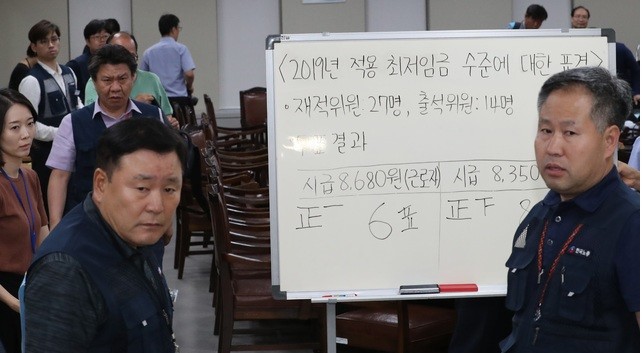 <2019년 적용 최저임금 수준에 대한 표결>
• 재적위원 27명, 출석위원: 14명
결과
시급 8,680원(근로자) 시급 8,350
正一 6표 正下 8